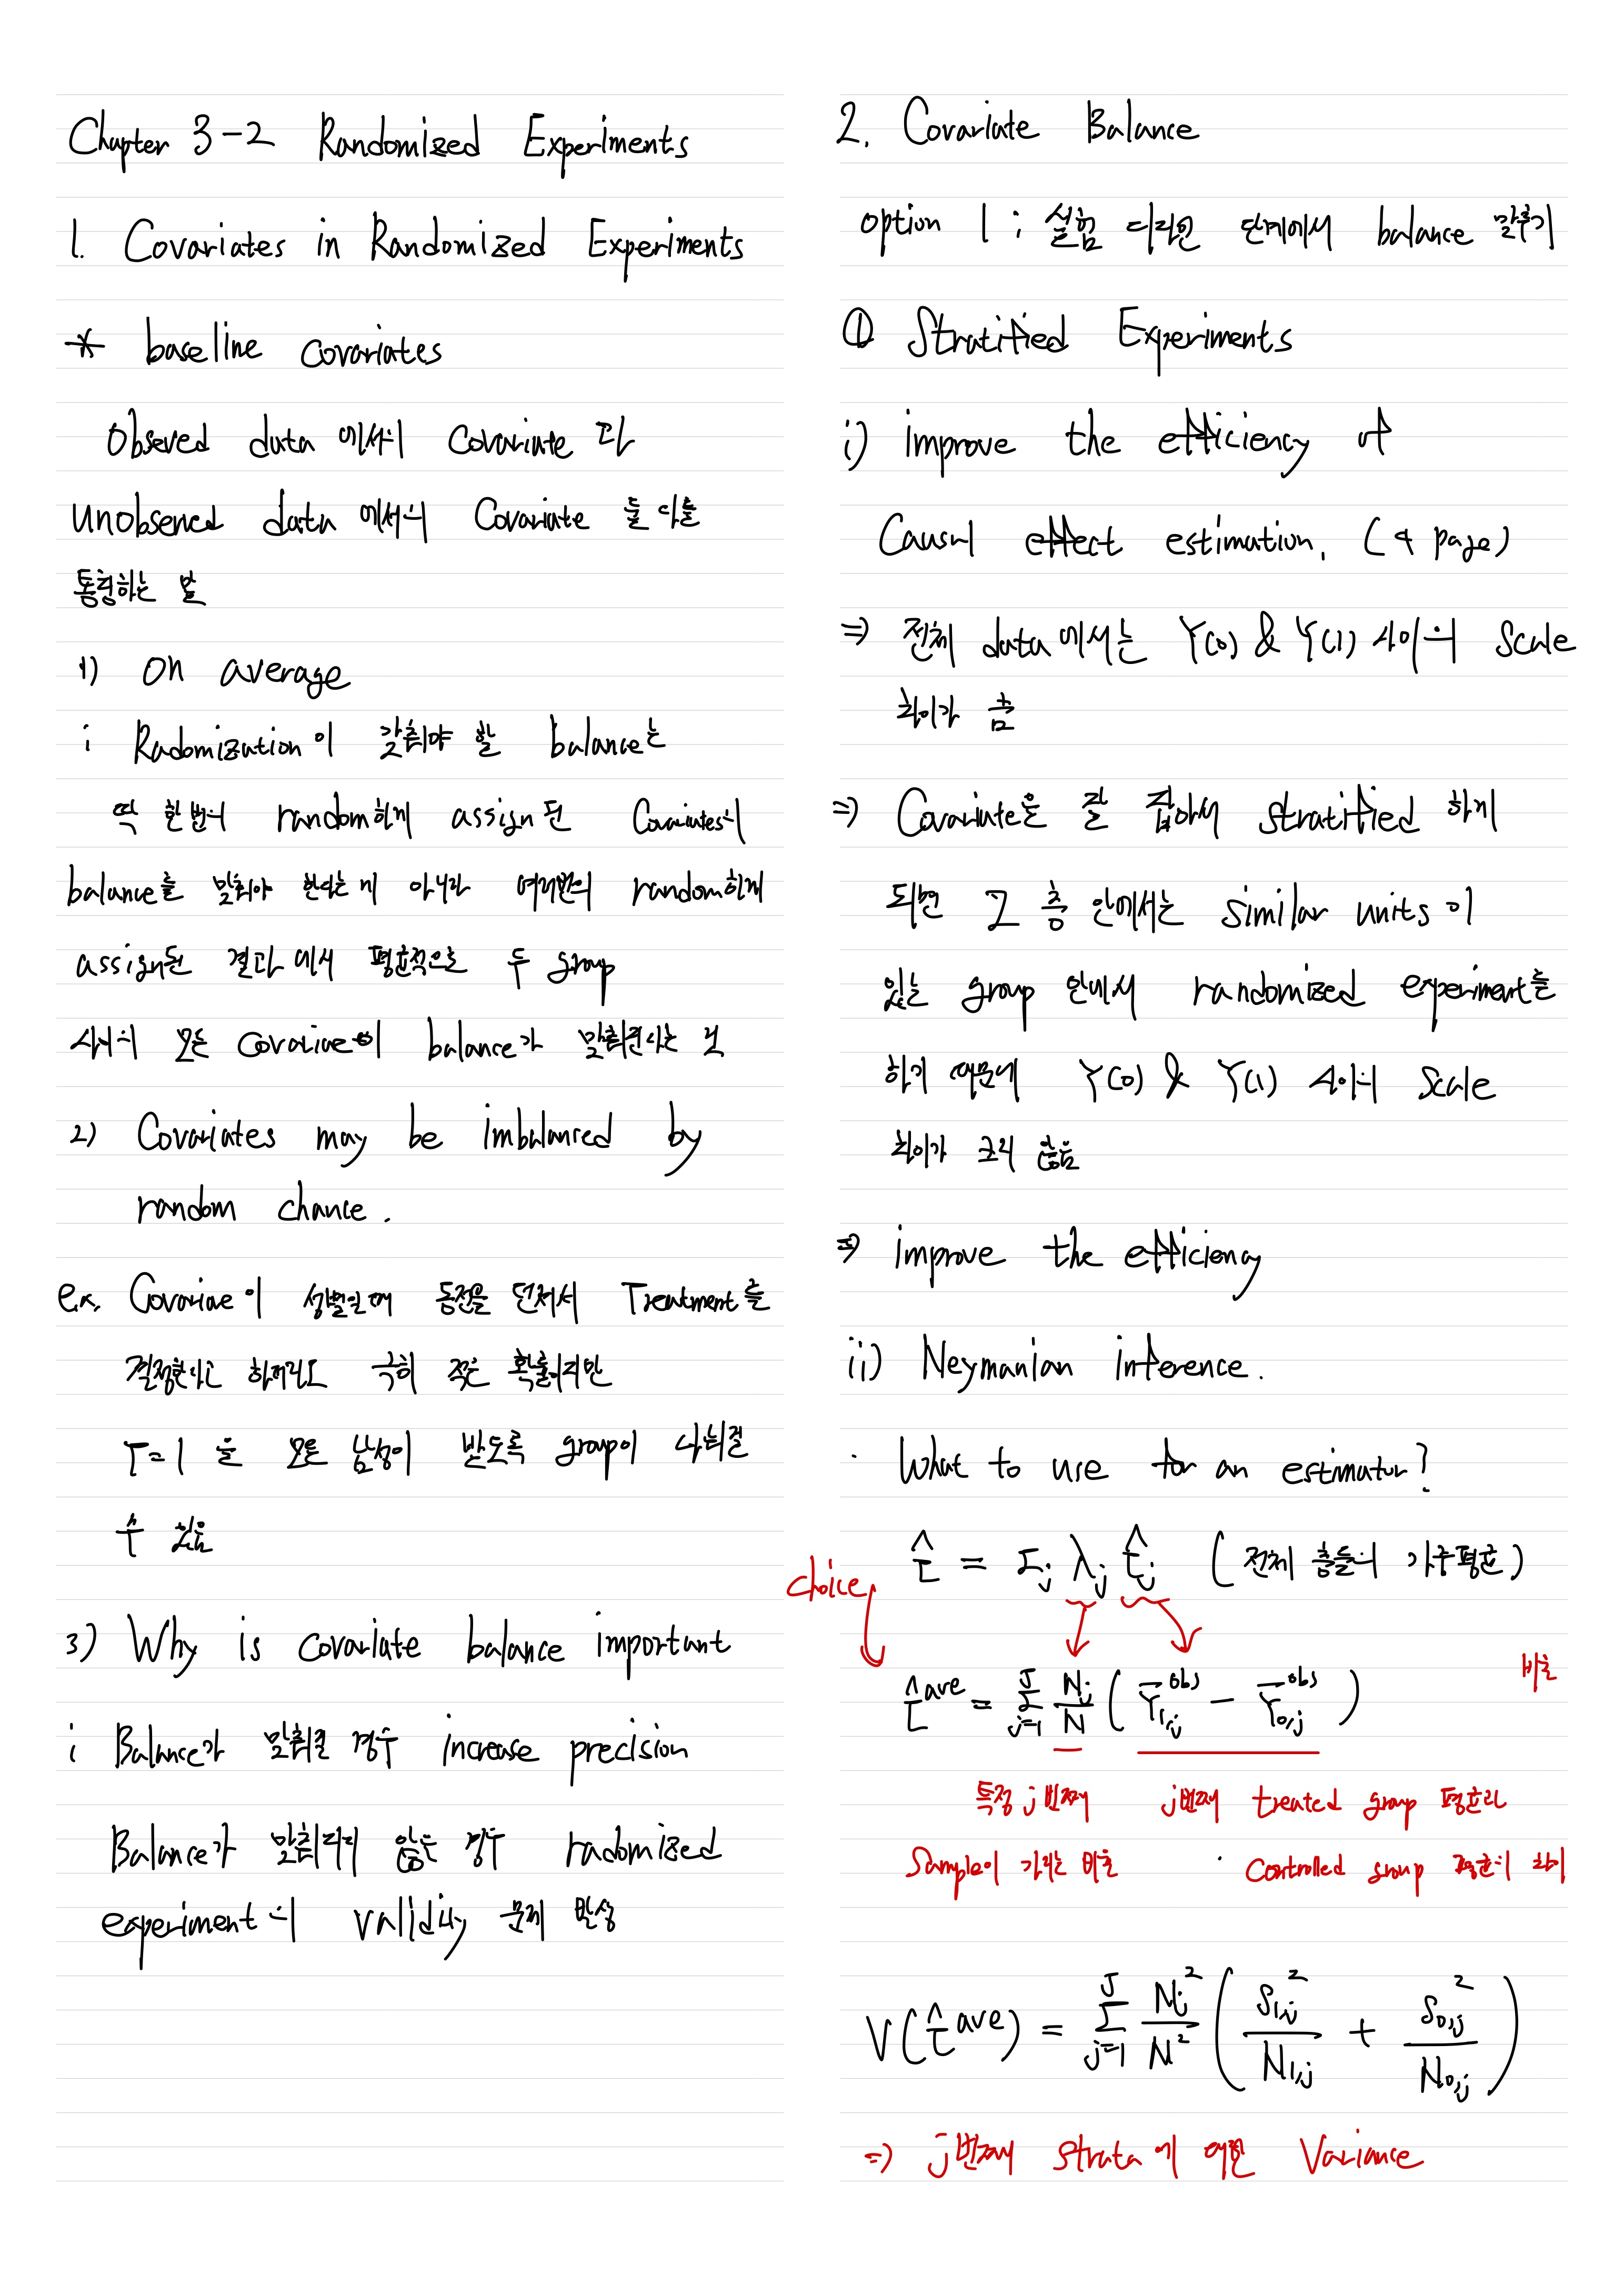 Chapter 3-2 Randomized Experiments
1. Covariates in Randomized Experiments
* baseline covariates
Obseved data 에서의 Covariate 과
unobserved data 에서의 Covariate 둘 다를
통칭하는 말
1) on average
i Radomization이 갖춰야 할 balance는
딱 한번의 random하게 assign 된 Covariates의
balance를 맞춰야 한다는 게 아니라 여러번의 random하게
assign된 결과에서 평균적으로 두 group
사이의 모든 covariae의 balance가 맞춰진다는 것
2) Covariates may be imbalanced by
random chance.
ex. Covariae이 성별일때 동전을 던져서 Treatment를
결정한다고 하더라도 극히 적은 확률이지만
T=1 을 모든 남성이 받도록 group이 나눠질
수 있음
3) Why is covariate balance important
i Balance가 맞춰질 경우 increase precision
Balance가 맞춰지지 않은 경우 radomized
experiment의 validity 문제 발생
2. Covariate Balance
option 1 ; 실험 디자인 단계에서 balance 맞추기
① Stratified Experiments
i) improve the efficiency of
Causal effect estimation. (4 page)
⇒ 전체 data에서는 Y(0) & Y(1) 사이의 Scale
차이가 큼
⇒ Covariate을 잘 잡아서 stratified 하게
되면 그 층 안에서는 similar units 이
있는 group 안에서 randomized experiment를
하기 때문에 Y(0) & Y(1) 사이의 Scale
차이가 크지 않음
⇒ improve the efficiency
ii) Neymanian inference.
· What to use for an estimator?
τ̂ = Σj λj τ̂j (전체 층들의 가중평균)
choice
τ̂^ave = Σ_{j=1}^{J} Nj/N ( Ȳ^obs_{1,j} - Ȳ^obs_{0,j} )
비율
특정 j번째 j번째 treated group 평균과
Sample이 가지는 비율 · Controlled group 평균의 차이
V(τ̂^ave) = Σ_{j=1}^{J} Nj²/N² ( S_{1,j}²/N_{1,j} + S_{0,j}²/N_{0,j} )
⇒ j번째 strata에 대한 Variance